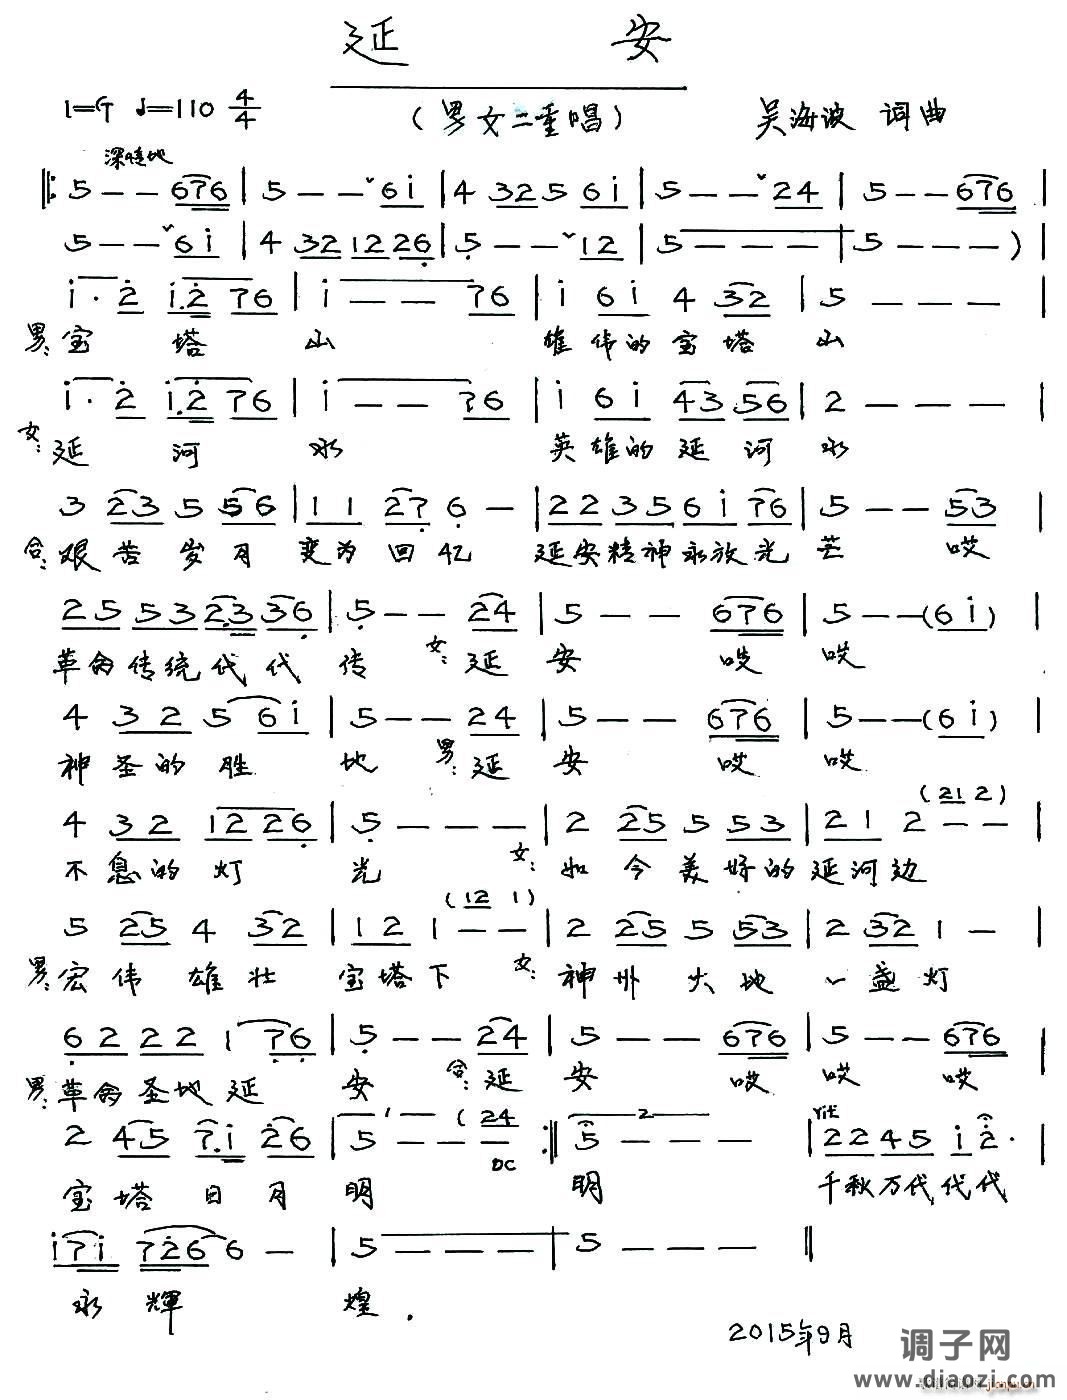 延 安
1=G ♩=110 4/4 (男女二重唱) 吴海波 词曲
深情地
‖: 5 – – 676 | 5 – – ˇ 6i | 4 32 5 6i | 5 – – ˇ 24 | 5 – – 676 |
5 – – ˇ 6i | 4 32 12 26 | 5 – – ˇ 12 | 5 – – – | 5 – – – )
i· 2 i.2 76 | i – – 76 | i 6i 4 32 | 5 – – – |
男:宝 塔 山 雄伟的宝塔山
i· 2 i.2 76 | i – – 76 | i 6i 43 56 | 2 – – – |
女:延 河 水 英雄的延河水
3 23 5 56 | 11 27 6 – | 22 35 6i 76 | 5 – – 53
合:艰苦岁月 变为回忆 延安精神永放光芒 哎
25 53 2.3 36 | 5 – – 24 | 5 – – 676 | 5 – – (6i) |
革命传统代代 传 女:延 安 哎 哎
4 32 5 6i | 5 – – 24 | 5 – – 676 | 5 – – (6i) |
神圣的胜 地 男:延 安 哎 哎
(21 2)
4 32 12 26 | 5 – – – | 2 25 5 53 | 21 2 – – |
不息的灯 光 女:如今美好的延河边
(12 1)
5 25 4 32 | 12 1 – – | 2 25 5 53 | 2 32 1 – |
男:宏伟雄壮 宝塔下 女:神州大地 一盏灯
62 22 1 76 | 5 – – 24 | 5 – – 676 | 5 – – 676 |
男:革命圣地延 安 合:延 安 哎 哎 哎
1 (24 2 rit
2 45 7.i 26 | 5 – – – :‖ 5 – – – | 22 45 i 2· |
DC
宝塔日月 明 明 千秋万代代代
i7i 7266 – | 5 – – – | 5 – – – ‖
永辉 煌.
2015年9月
调子网
www.diaozi.com